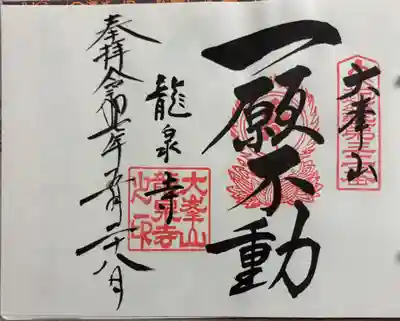 大峯山
一願不動
龍泉寺
大峯山
龍泉寺
之印
奉拝令和年月二十八日